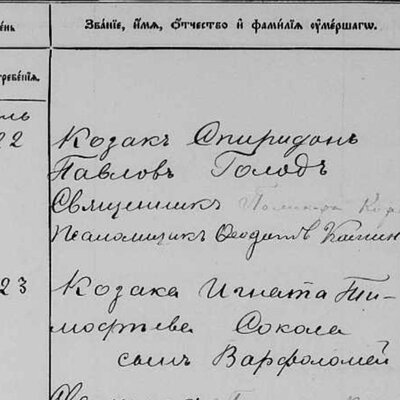 ень
Зва́нїе, и҆́мѧ, ѻ҆́тчество и҆ фами́лїѧ ᲂу҆ме́ршагѡ.
гребе́нїѧ.
ль
22 Козакъ Спиридонъ
Павловъ Голодъ
Священникъ
Псаломщикъ Ѳеодотъ
23 Козака Игната Ти-
моѳѣева Сокола
сынъ Варѳоломей